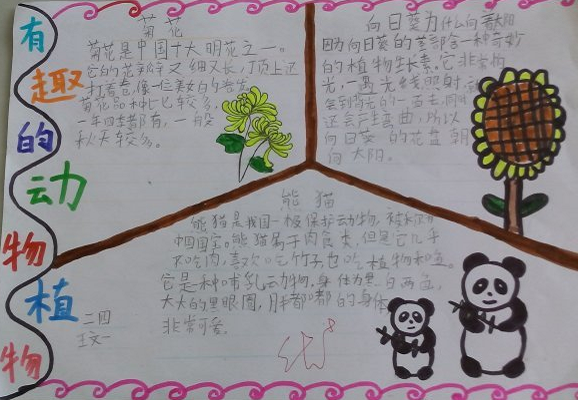 有趣的动物植物
菊花
菊花是中国十大明花之一。
它的花瓣又细又长,顶上还
打着卷,像一位美女的卷发
菊花品种比较多,
一年四季都有,一般
秋天较多。
向日葵为什么向着太阳
因为向日葵的茎部含一种奇妙
的植物生长素。它非常怕
光,一遇光线照射,
会到背光的一面去,同时
还会产生弯曲,所以
向日葵的花盘朝
向太阳。
熊猫
熊猫是我国一极保护动物,被称为
中国国宝。熊猫属于肉食类,但是它几乎
不吃肉,喜欢吃竹子,也吃植物和鱼。
它是种哺乳动物,身体为黑白两色,
大大的黑眼圈,胖都都的身体
非常可爱。
二四
王文一
优